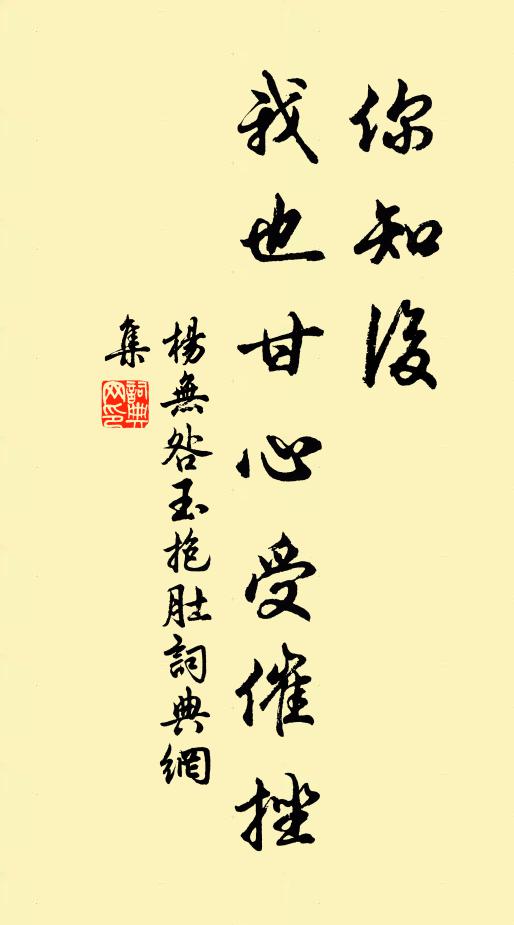 你知後
我也甘心受催挫
楊無咎玉抱肚詞典網
集
詞典網印